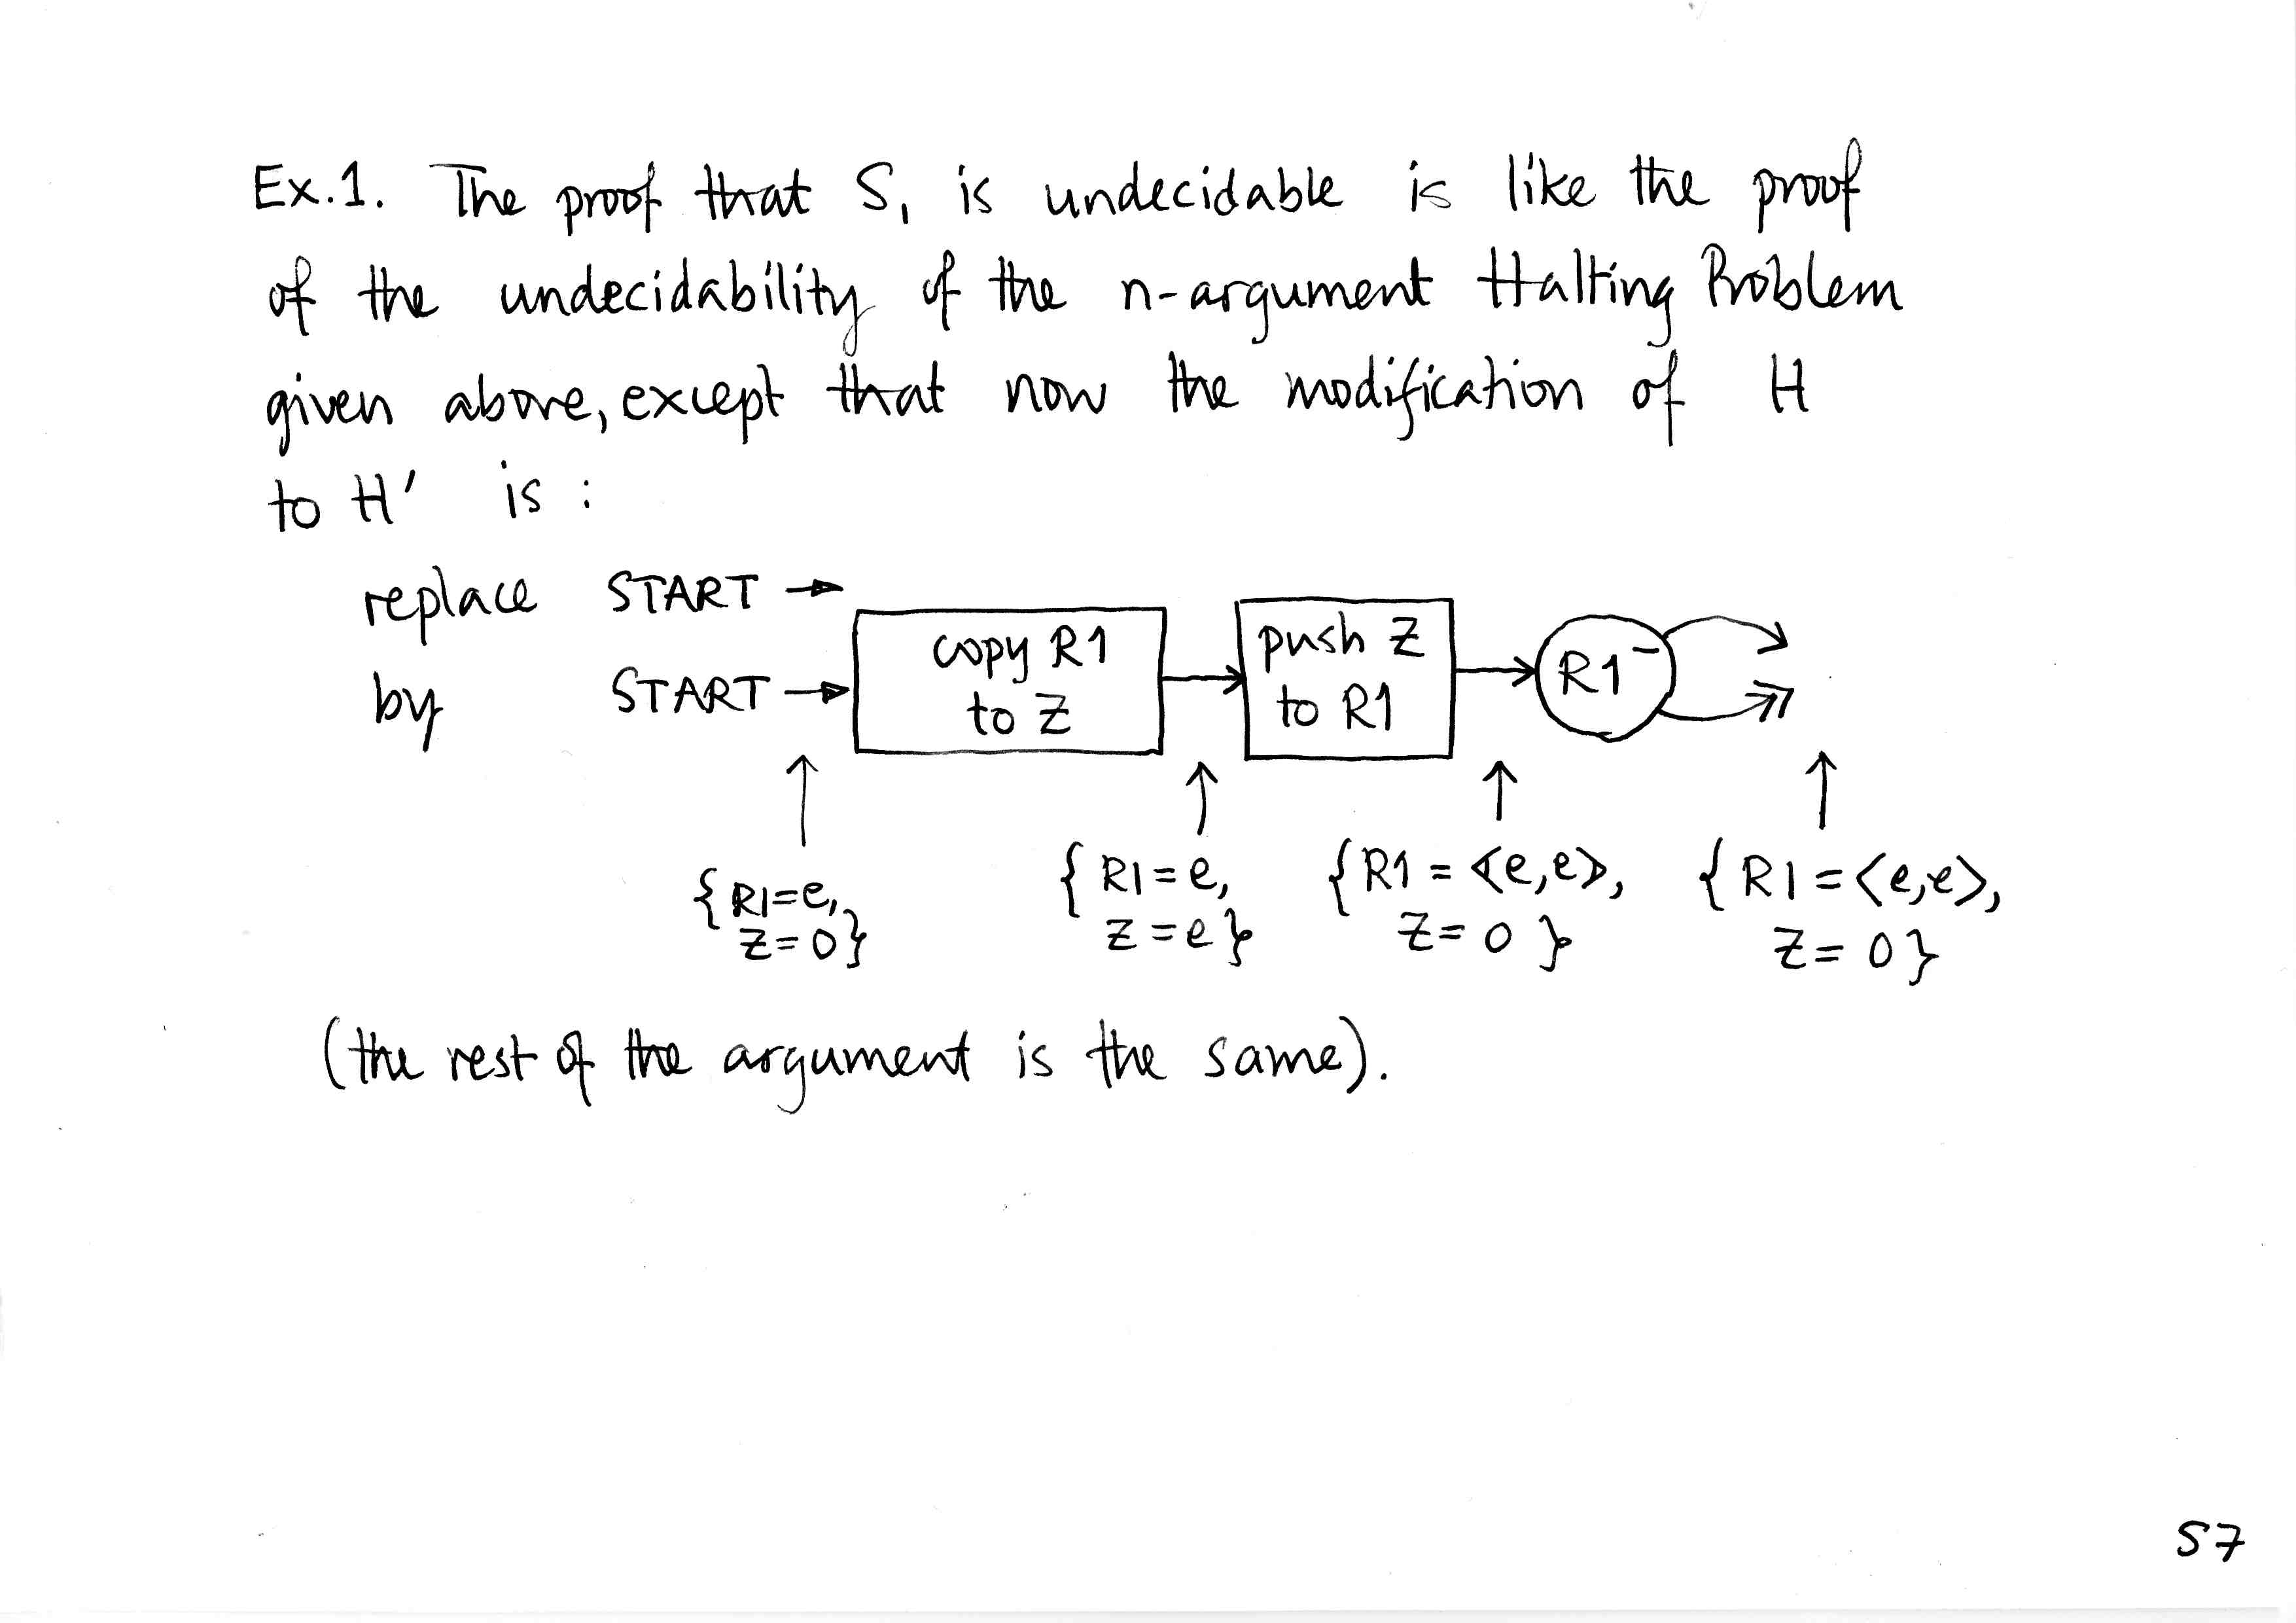 Ex.1. The proof that S₁ is undecidable is like the proof
of the undecidability of the n-argument Halting Problem
given above, except that now the modification of H
to H' is :
replace START →
by START → copy R1 to Z → push Z to R1 → R1⁻
{R1=e, Z=0}
{R1=e, Z=e}
{R1=⟪e,e⟫, Z=0}
{R1=⟨e,e⟩, Z=0}
(the rest of the argument is the same).
S7